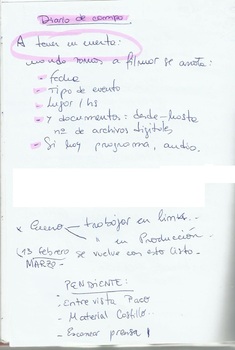 Diario de campo
A tener en cuenta:
cuando vamos a filmar se anota:
- Fecha
- Tipo de evento
- Lugar / hs
- y documentos: desde-hasta
nº de archivos digitales
- Si hay programa, audio.
* Quiero trabajar en links.
" en Producción.
(13 febrero se vuelve con esto listo.
MARZO -
PENDIENTE:
- Entrevista Paco
- Material Castillo.
- Escanear prensa